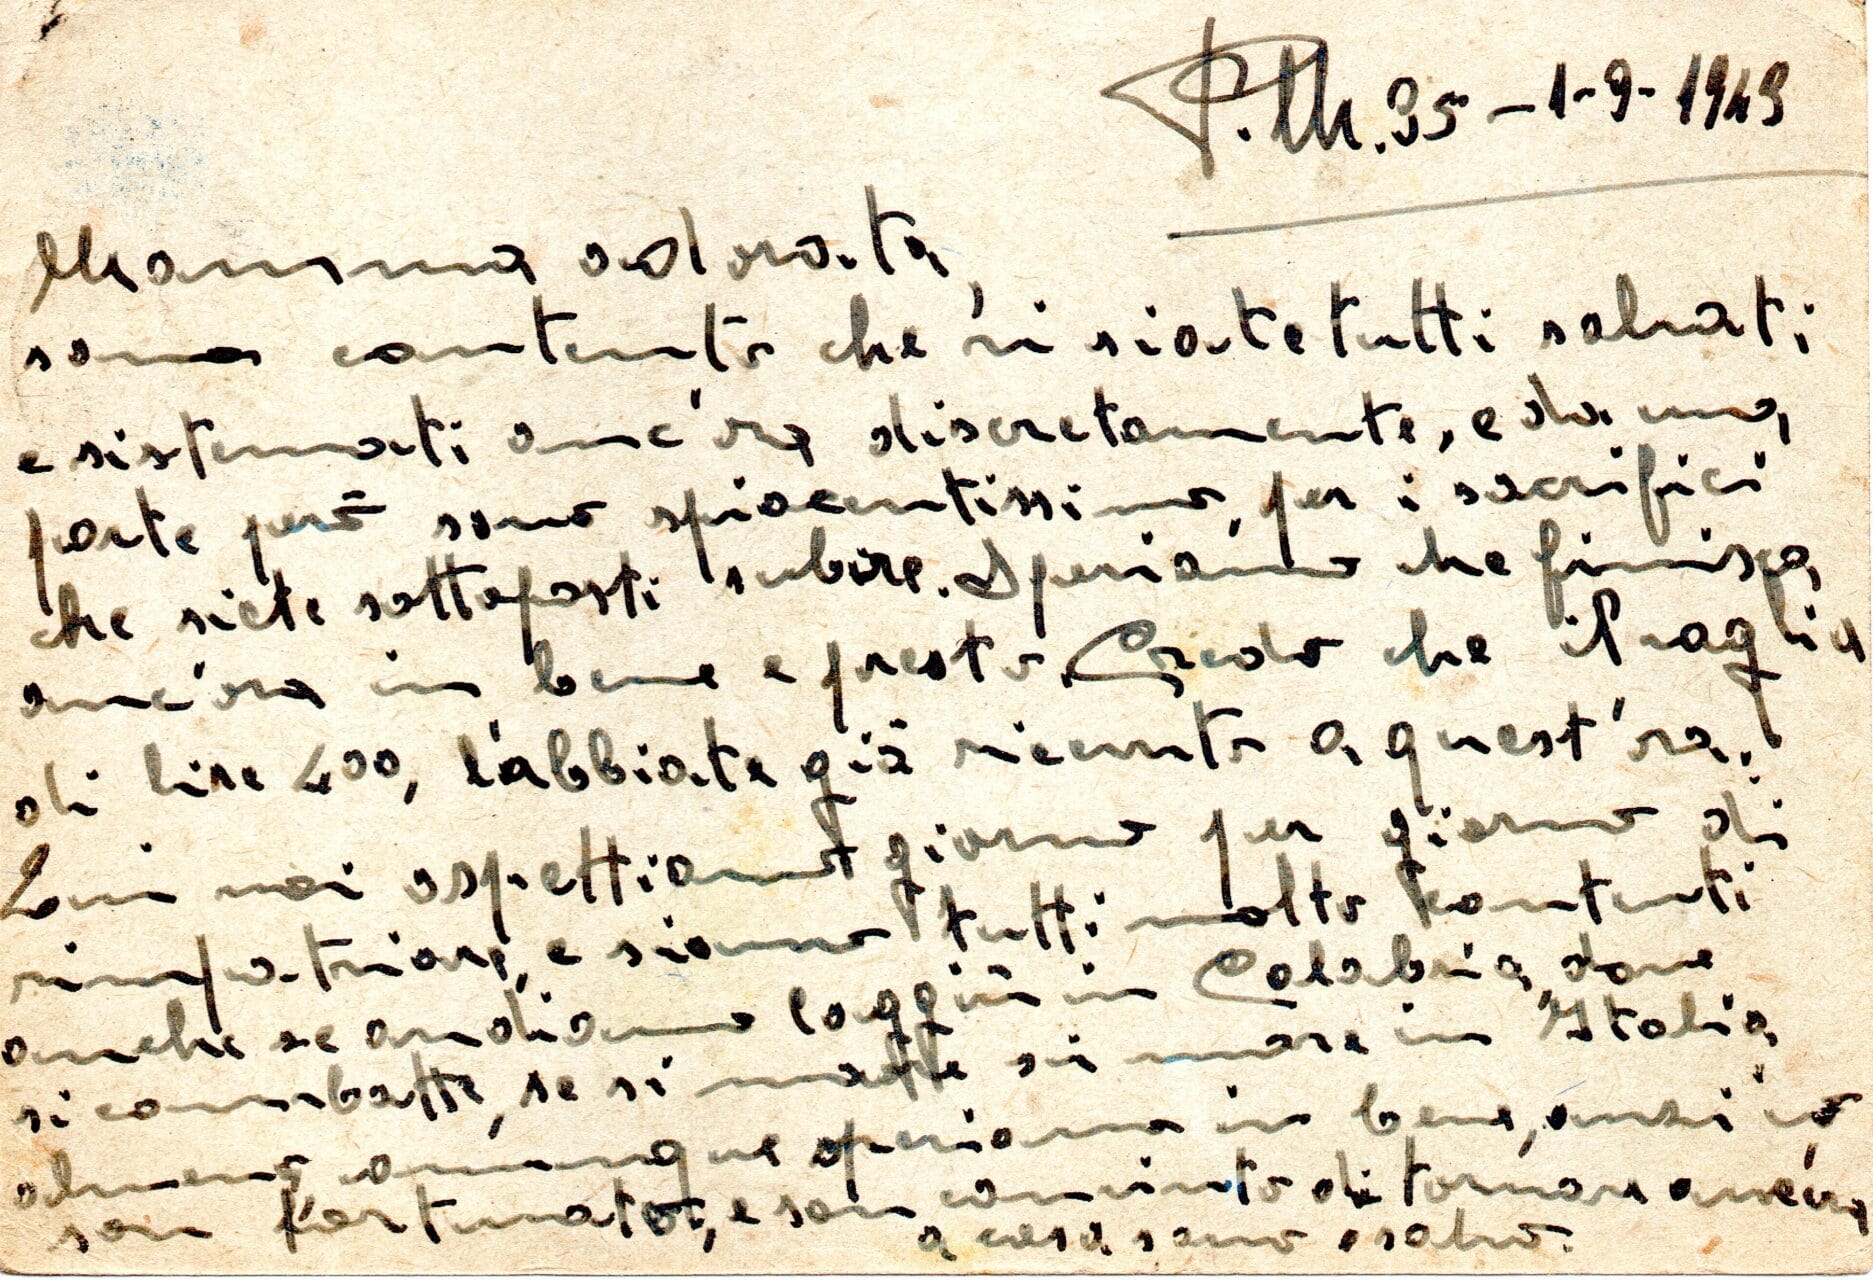 P.M. 95 - 1-9-1943
Mamma adorata,
sono contento che vi siate tutti salvati
e sistemati anc'ora discretamente, e da una
parte però sono spiacentissimo, per i sacrifici
che siete sottoposti subire. Speriamo che finisca
anc'ora in bene e presto. Credo che il vaglia
di lire 400, l'abbiate già ricevuto a quest'ora.
Qui noi aspettiamo giorno per giorno di
rimpatriare, e siamo tutti molto contenti
anche se andiamo laggiù in Calabria, dove
si combatte, se si muore si more in Italia
almeno comunque speriamo in bene, anzi io
son fortunato, e son convinto di tornare anc'ora
a casa sano e salvo.